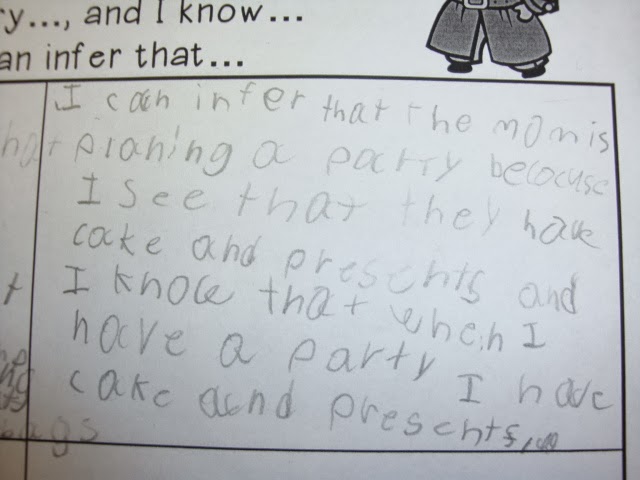 ry..., and I know...
an infer that...
I can infer that the mom is
planing a party becacuse
I see that they have
cake and presents and
I know that when I
have a party
I have
cake aend presents,
bags